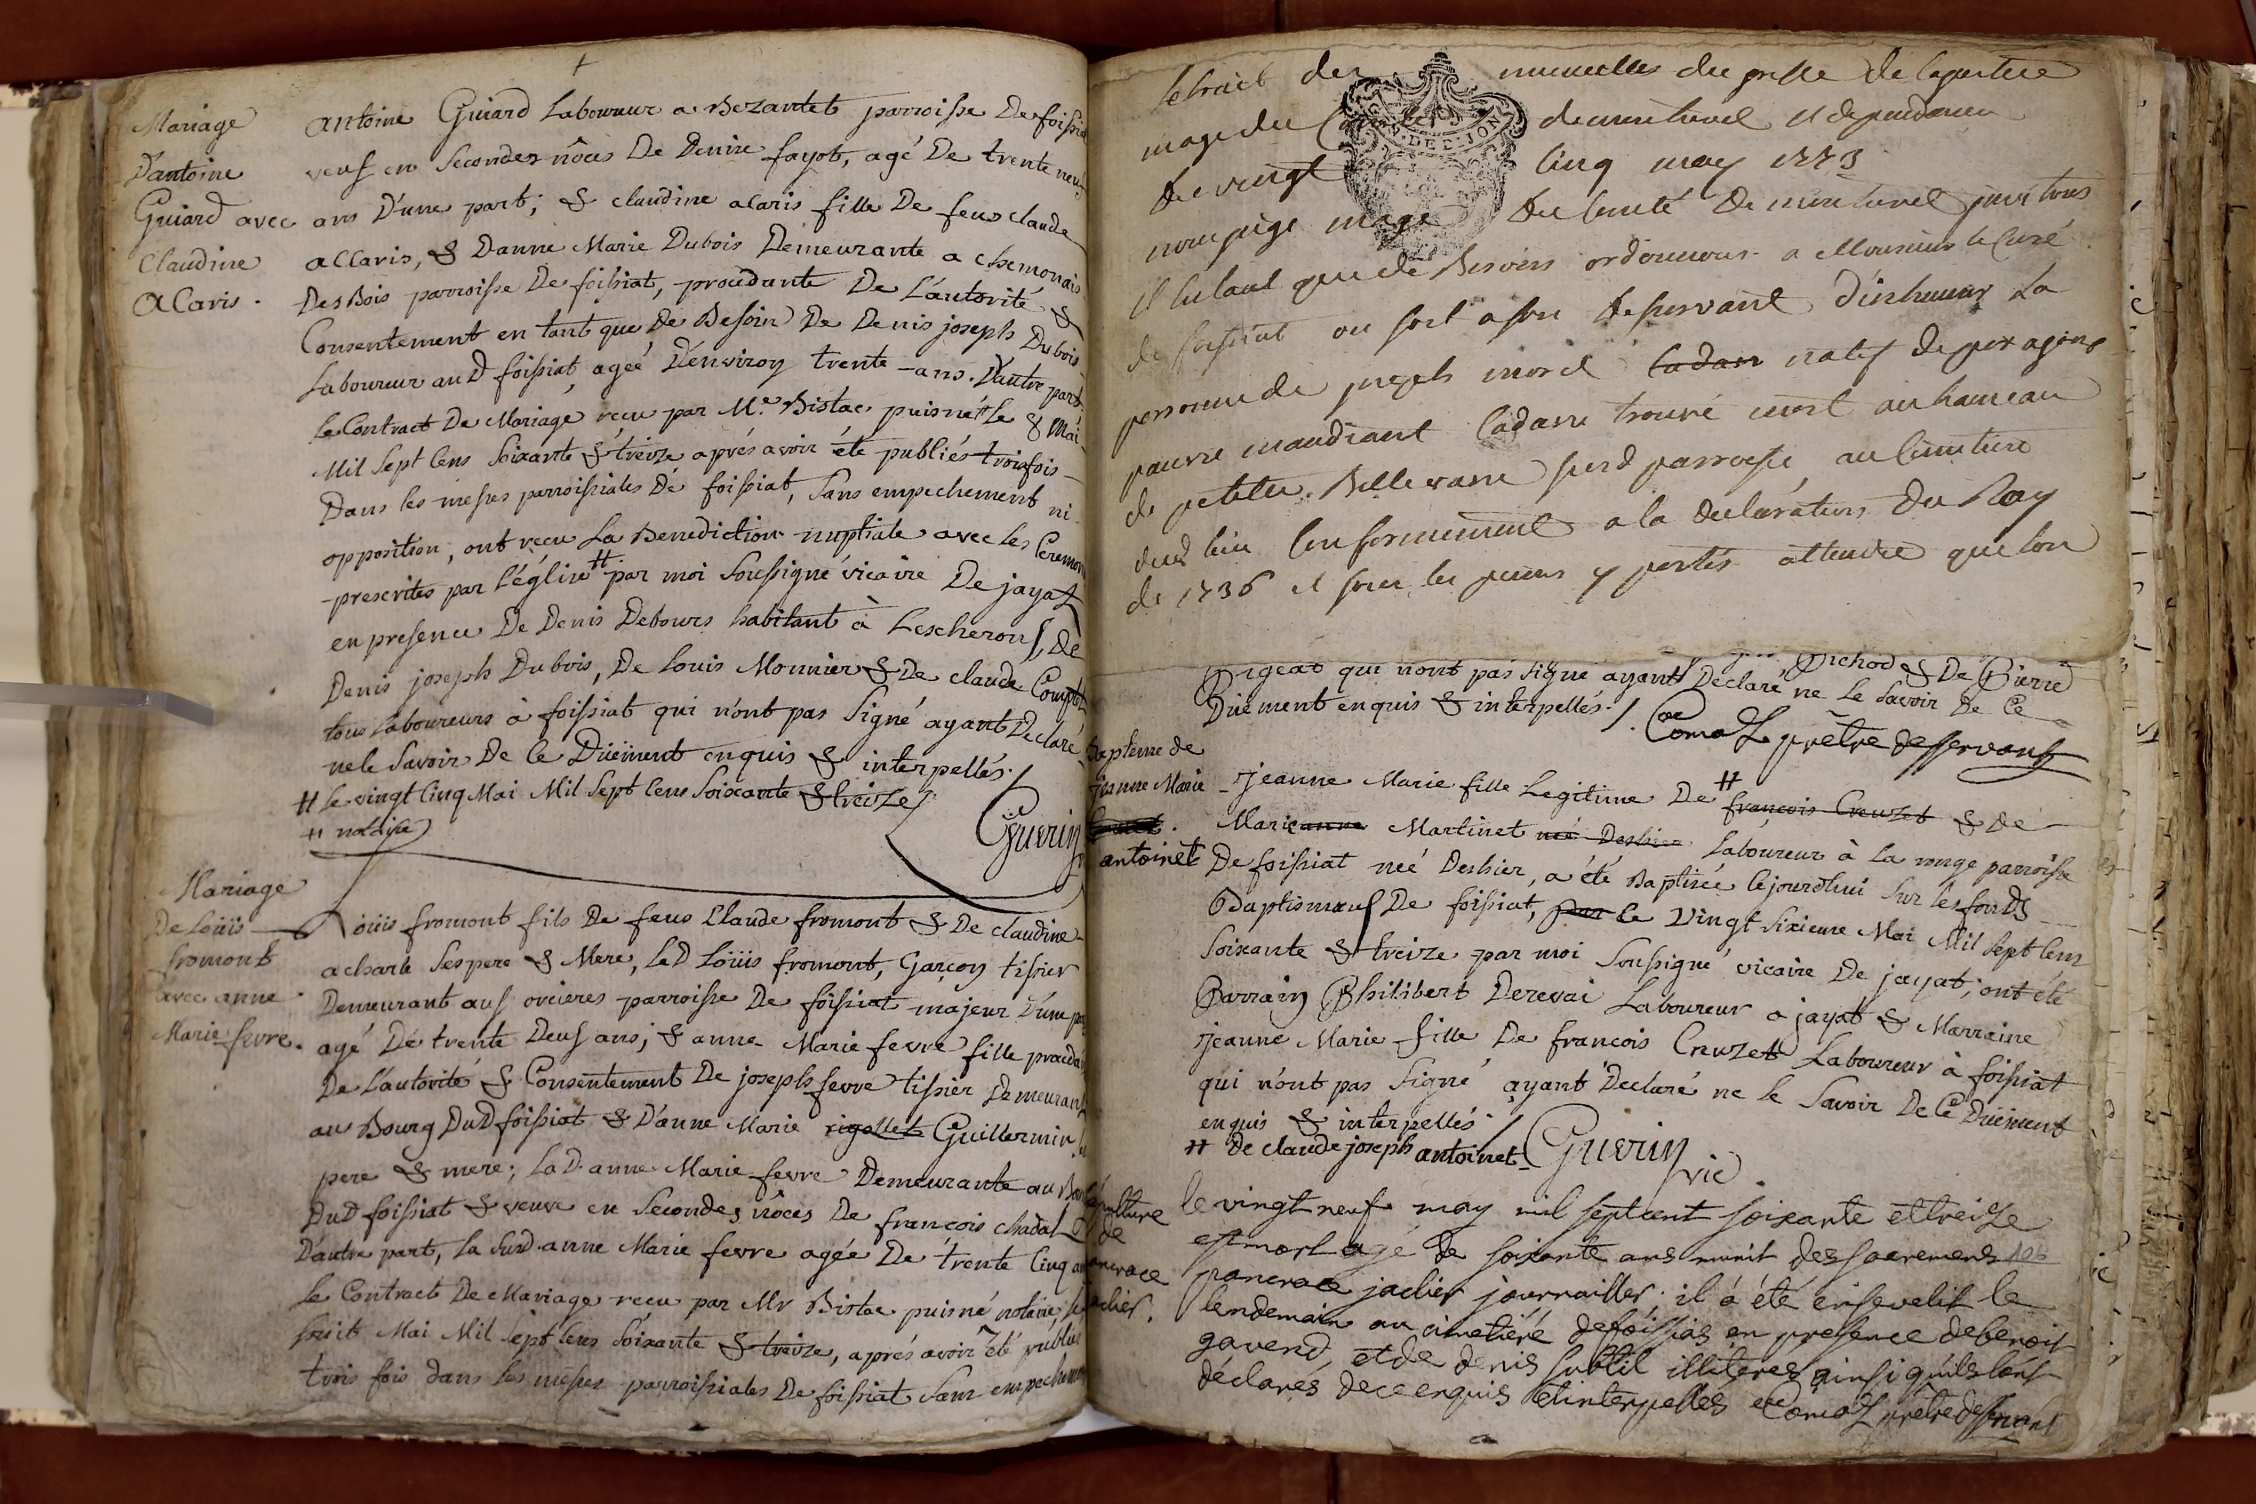 Mariage
D'antoine
Guiard avec
Claudine
Alaris.
antoine Guiard Laboureur a Bezantet parroisse De foissiat
veuf en Secondes nôces De Denise fayot, agé De trente neuf
ans D'une part; & claudine alaris fille De feus claude
allaris, & D'anne Marie Dubois Demeurante a chemonais
Des Bois parroisse De foissiat, procedante De L'autorité &
Consentement en tant que De Besoin De Denis joseph Dubois
Laboureur aud foissiat, agée D'environ trente ans. D'autre part,
le Contract De Mariage reçu par Me. Bistac puisné # Le 8 Mai
Mil Sept Cens Soixante & treize après avoir été publiés trois fois
Dans les messes parroissiales De foissiat, Sans empechement ni
opposition, ont reçu La Benediction nuptiale avec les Ceremon
prescrites par l'église # par moi Soussigné vicaire De jayat
en presence De Denis Debours habitant à Lescheroux, De
Denis joseph Dubois, De Louis Monnier & De claude
tous Laboureurs à foissiat qui n'ont pas Signé ayant Declaré
ne le Savoir De Ce Düëment enquis & interpellés.
# Le vingt Cinq Mai Mil Sept Cens Soixante & treize
# notaire
Guerin
Mariage
De Loüis
fromont
avec anne
Marie fevre.
Loüis fromont fils De feus Claude fromont & De claudine
a charle Ses pere & Mere, Le D Loüis fromont, Garçon tissier
Demeurant aux ovcieres parroisse De foissiat majeur D'une part
agé De trente Deux ans; & anne Marie fevre fille proceda
De L'autorité & Consentement De joseph fevre tissier Demeurant
au Bourg Dud foissiat & D'anne Marie rigollet Guillermin
pere & mere; La D. anne Marie fevre Demeurante au
Dud foissiat & veuve en Secondes nôces De françois chadal
D'autre part, la Susd. anne Marie fevre agée De trente Cinq
Le Contract De Mariage reçu par Mr Bistac puisné notaire,
huit Mai Mil Sept Cens Soixante & treize, après avoir été publiés
trois fois dans les messes parroissiales De foissiat Sans empechement
Extrait des minuttes du greffe de la justice
mage du Comté de montrevel et dependances
du vingt cinq may 1773
nous juge mage du Comté de montrevel
il en tant que de Besoins ordonnons a Monsieur le Curé
de foissiat ou soit a son desservant d'inhumer La
personne de joseph morel Cadavre natif de
pauvre mandiant Cadavre trouvé mort au hameau
de petitte Bellevavre susd parroisse, au Cimetiere
dud lieu Conformement a la declaration du Roy
de 1736 et sous les peines y portés attendu que son
qui n'ont pas Signé ayant Declaré ne Le Savoir De Ce
Pichod & De Pierre
Düement enquis & interpellés.
Comoz prêtre desservant
Baptême de
jeanne Marie
antoinet
jeanne Marie fille Legitime De # françois Creuzet & de
Marieanne Martinet neé Desbier Laboureur à La rouge parroisse
De foissiat neé Desbier, a été Baptisée Cejourd'hui Sur les fonds
Baptismaux De foissiat, par Le vingt Sixieme Mai Mil Sept Cens
Soixante & treize par moi Soussigné vicaire De jayat; ont été
Parrain Philibert Derevai Laboureur à jayat & Marraine
jeanne Marie fille De françois Creuzet Laboureur à foissiat
qui n'ont pas Signé ayant Declaré ne le Savoir De Ce Düement
enquis & interpellés
# De claude joseph antoinet
Guerin vic.
Sepulture
de
pancrace
jaclier.
le vingt neuf may mil sept cent soixante et treize
est mort agé de soixante ans munit des sacrements
pancrace jaclier journailler; il à été ensevelit le
lendemain au cimetiére de foissias en presence de benoit
gavend et de denis subtil illiteres ainsi qu'ils l'ont
déclarés de ce enquis et interpellés Comoz prêtre desservant